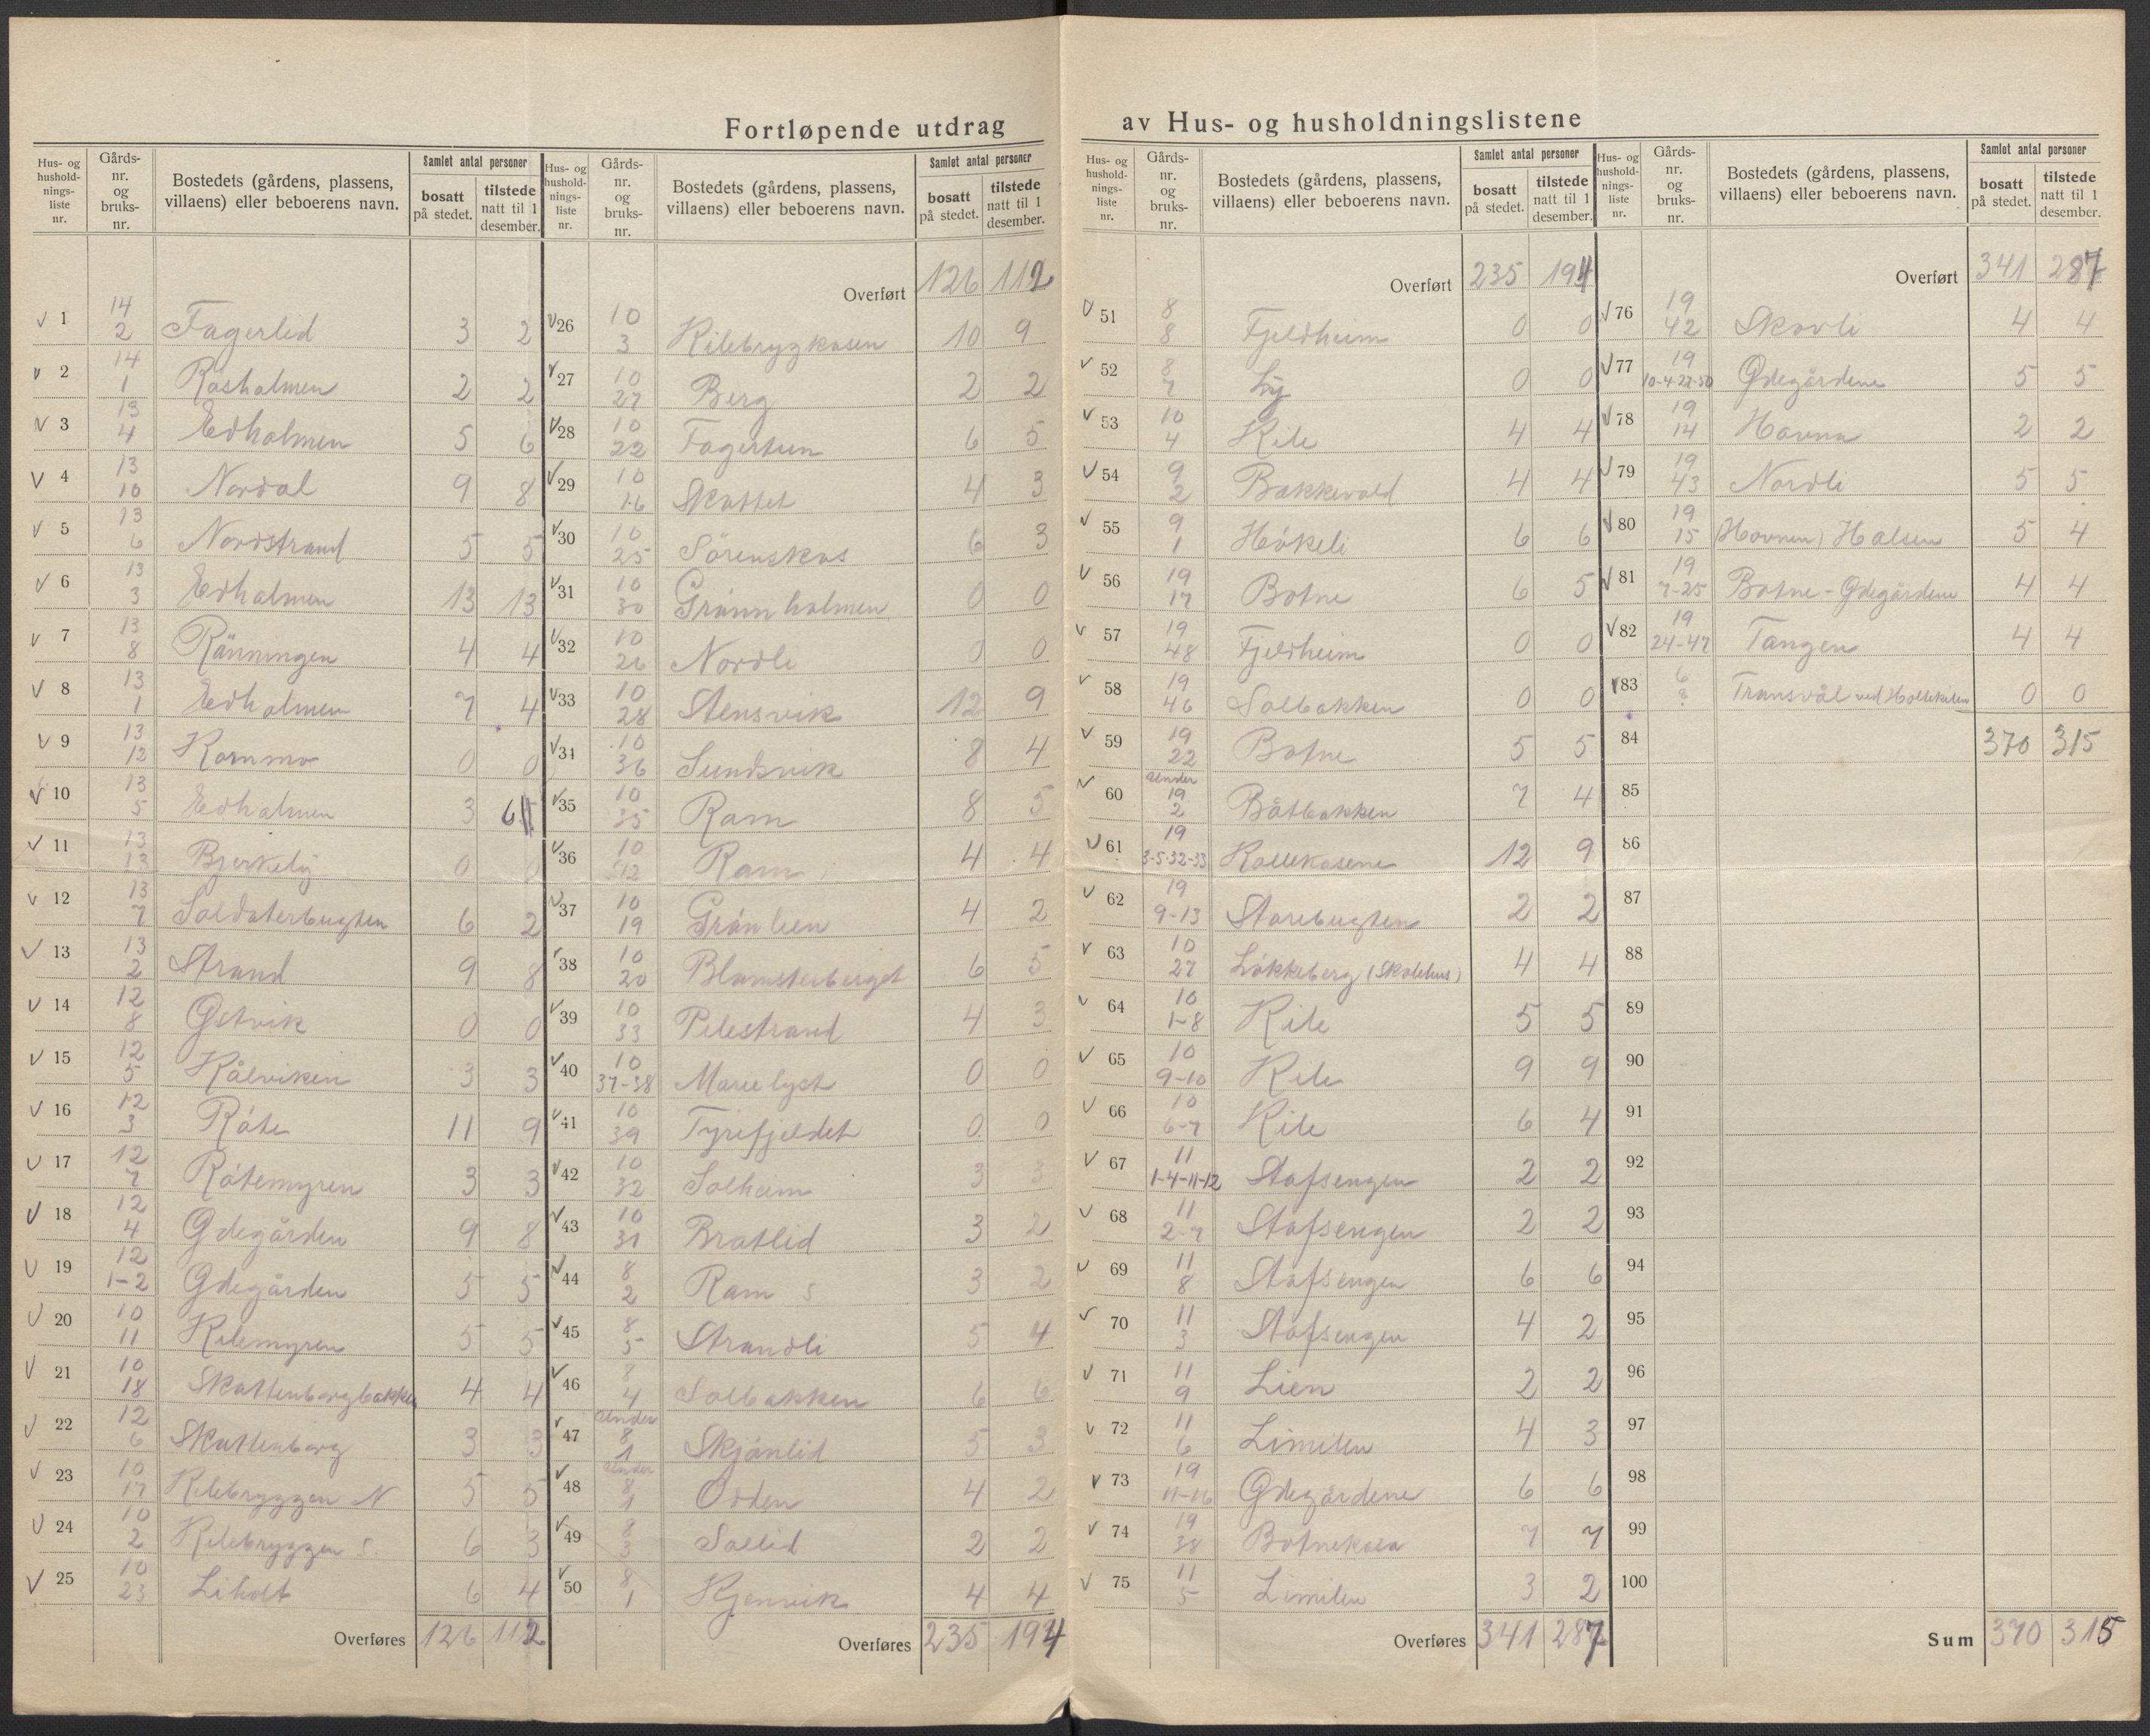 Fortløpende utdrag av Hus- og husholdningslistene
Hus- og husholdningsliste nr. | Gårdsnr. og bruksnr. | Bostedets (gårdens, plassens, villaens) eller beboerens navn. | Samlet antal personer | bosatt på stedet. | tilstede natt til 1 desember.
1 14 2 Fagerlid 3 2
2 14 1 Rasholmen 2 2
3 13 4 Edholmen 5 6
4 13 10 Nordal 9 8
5 13 6 Nordstrand 5 5
6 13 3 Edholmen 13 13
7 13 8 Rånningen 4 4
8 13 1 Edholmen 7 4
9 13 12 Kornmo 0 0
10 13 5 Edholmen 3 6
11 13 13 Bjerkely 0 0
12 13 7 Soldaterbugten 6 2
13 13 2 Strand 9 8
14 12 8 Østvik 0 0
15 12 5 Kålviken 3 3
16 12 3 Råte 11 9
17 12 7 Råtemyren 3 3
18 12 4 Ødegården 9 8
19 12 1-2 Ødegården 5 5
20 10 11 Kilemyren 5 5
21 10 18 Skottenborgbakken 4 4
22 12 6 Skottenborg 3 3
23 10 17 Kilebryggen N 5 5
24 10 2 Kilebryggen S. 6 3
25 10 23 Liholt 6 4
Overføres 126 112
Hus- og husholdningsliste nr. | Gårdsnr. og bruksnr. | Bostedets (gårdens, plassens, villaens) eller beboerens navn. | Samlet antal personer | bosatt på stedet. | tilstede natt til 1 desember.
Overført 126 112
26 10 3 Kilebrygkasen 10 9
27 10 27 Berg 2 2
28 10 22 Fagertun 6 5
29 10 16 Skottet 4 3
30 10 25 Sörenskas 6 3
31 10 30 Grönnholmen 0 0
32 10 26 Nordli 0 0
33 10 28 Stensvik 12 9
34 10 36 Sundsvik 8 4
35 10 35 Ram 8 5
36 10 12 Ram 4 4
37 10 19 Grönlien 4 2
38 10 20 Blomsterberget 6 5
39 10 33 Pilestrand 4 3
40 10 37-38 Marielyst 0 0
41 10 39 Tyrefjeldet 0 0
42 10 32 Solheim 3 3
43 10 31 Bratlid 3 2
44 8 2 Ram S 3 2
45 8 5 Strandli 5 4
46 8 4 Solbakken 6 6
47 under 8 1 Skjönlid 5 3
48 under 8 1 Odden 4 2
49 8 3 Sollid 2 2
50 8 1 Kjenvik 4 4
Overføres 235 194
Hus- og husholdningsliste nr. | Gårdsnr. og bruksnr. | Bostedets (gårdens, plassens, villaens) eller beboerens navn. | Samlet antal personer | bosatt på stedet. | tilstede natt til 1 desember.
Overført 235 194
51 8 8 Fjeldheim 0 0
52 8 7 Ly 0 0
53 10 4 Kile 4 4
54 9 2 Bakkevold 4 4
55 9 1 Håkeli 6 6
56 19 17 Botne 6 5
57 19 48 Fjeldheim 0 0
58 19 46 Solbakken 0 0
59 19 22 Botne 5 5
60 under 19 2 Båtbakken 7 4
61 19 3-5-32-33 Kollekasene 12 9
62 19 9-13 Storebugten 2 2
63 10 27 Lökkeberg (Skolehus) 4 4
64 10 1-8 Kile 5 5
65 10 9-10 Kile 9 9
66 10 6-7 Kile 6 4
67 11 1-4-11-12 Stafsengen 2 2
68 11 2-7 Stafsengen 2 2
69 11 8 Stafsengen 6 6
70 11 3 Stafsengen 4 2
71 11 9 Lien 2 2
72 11 6 Limilen 4 3
73 19 11-16 Ødegårdene 6 6
74 19 38 Botnekasa 7 7
75 11 5 Limilen 3 2
Overføres 341 287
Hus- og husholdningsliste nr. | Gårdsnr. og bruksnr. | Bostedets (gårdens, plassens, villaens) eller beboerens navn. | Samlet antal personer | bosatt på stedet. | tilstede natt til 1 desember.
Overført 341 287
76 19 42 Skovli 4 4
77 19 10-4-27-50 Ødegårdene 5 5
78 19 14 Havna 2 2
79 19 43 Nordli 5 5
80 19 15 (Havnen) Halsen 5 4
81 19 7-25 Botne-Ødegårdene 4 4
82 19 24-47 Tangen 4 4
83 6 ? Transvål ved Holtekilen 0 0
84 370 315
85
86
87
88
89
90
91
92
93
94
95
96
97
98
99
100
Sum 370 315